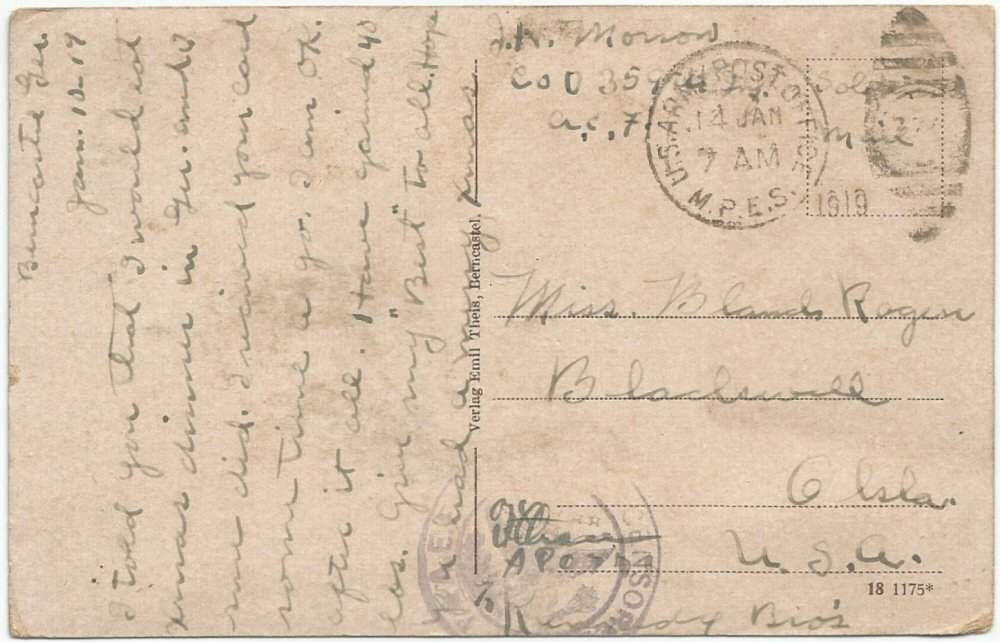 Berncastle Ger.
Jan. 12-19
I told you that I would eat
xmas dinner in Ger. and
sure did. I received your card
some time ago. I am OK.
after it all. Have gained 40
lbs. Give my "Best" to all. Hope
you had a merry xmas
Verlag Emil Theis, Berncastel.
J.W. Morrow
Co D 359
A.E.F.
Mail
U.S. ARMY POST OFFICE
14 JAN
7 AM
M.P.E.S.
1919
Miss. Rogers
Blackwell
Okla.
U.S.A.
APO
% Kennedy Bro's
18 1175*